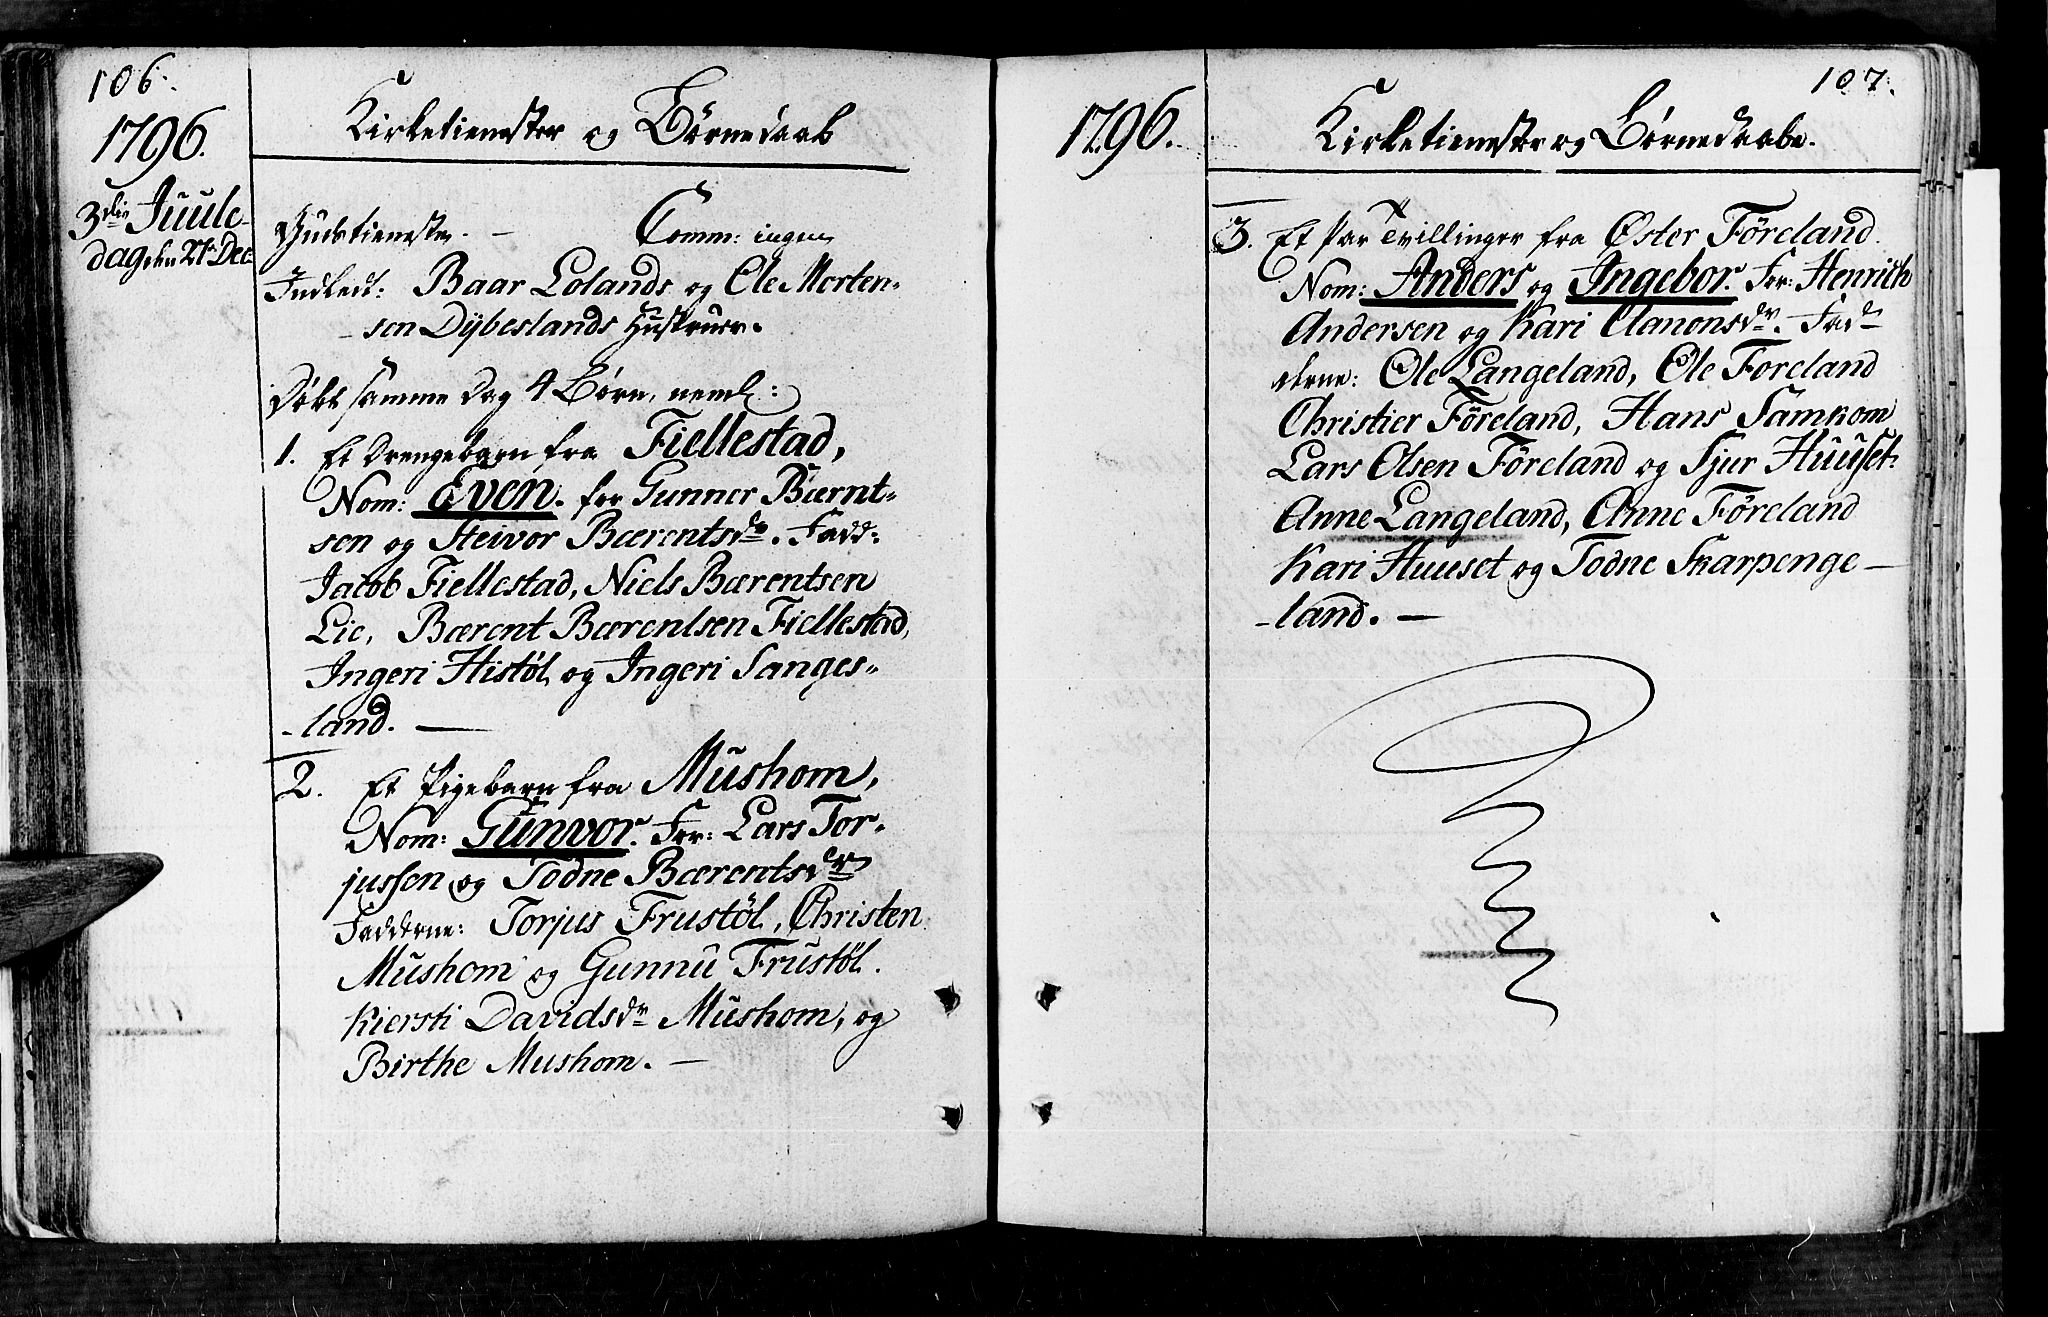 106.
1796.
Kirketienester og Børnedaab
3die Juule-
dag den 27de Dec.
Gudstieneste. – Comm: ingen
Indledt: Baar Lolands og Ole Morten-
-sen Dybeslands Hustruer.
Døbt samme Dag 4 Børn, neml:
1. Et Drengebarn fra Fiellestad,
Nom: Even. For Gunner Bærnt-
sen og Steivor Bærentsdr. Fadd:
Jacob Fiellestad, Niels Bærentsen
Lie, Bærent Bærentsen Fiellestad,
Ingeri Histøl og Ingeri Sanges-
-land. —
2. Et Pigebarn fra Mushom,
Nom: Gunvor. For: Lars Tor-
jussen og Todne Bærentsdr
Fadderne: Torjus Frustøl, Christen
Mushom og Gunnu Frustøl.
Kiersti Davidsdr Mushom, og
Birthe Mushom. —
107.
1796.
Kirketienester og Børnedaabe.
3. Et Par Tvillinger fra Øster Föreland.
Nom: Anders og Ingebor. For: Henrich
Andersen og Kari Clanonsdr. Fad-
derne: Ole Langeland, Ole Foreland
Christier Föreland, Hans Samkom
Lars Olsen Föreland og Sjur Huuset.
Anne Langeland, Anne Föreland
Kari Huuset og Todne Skarpenge –
-land. —